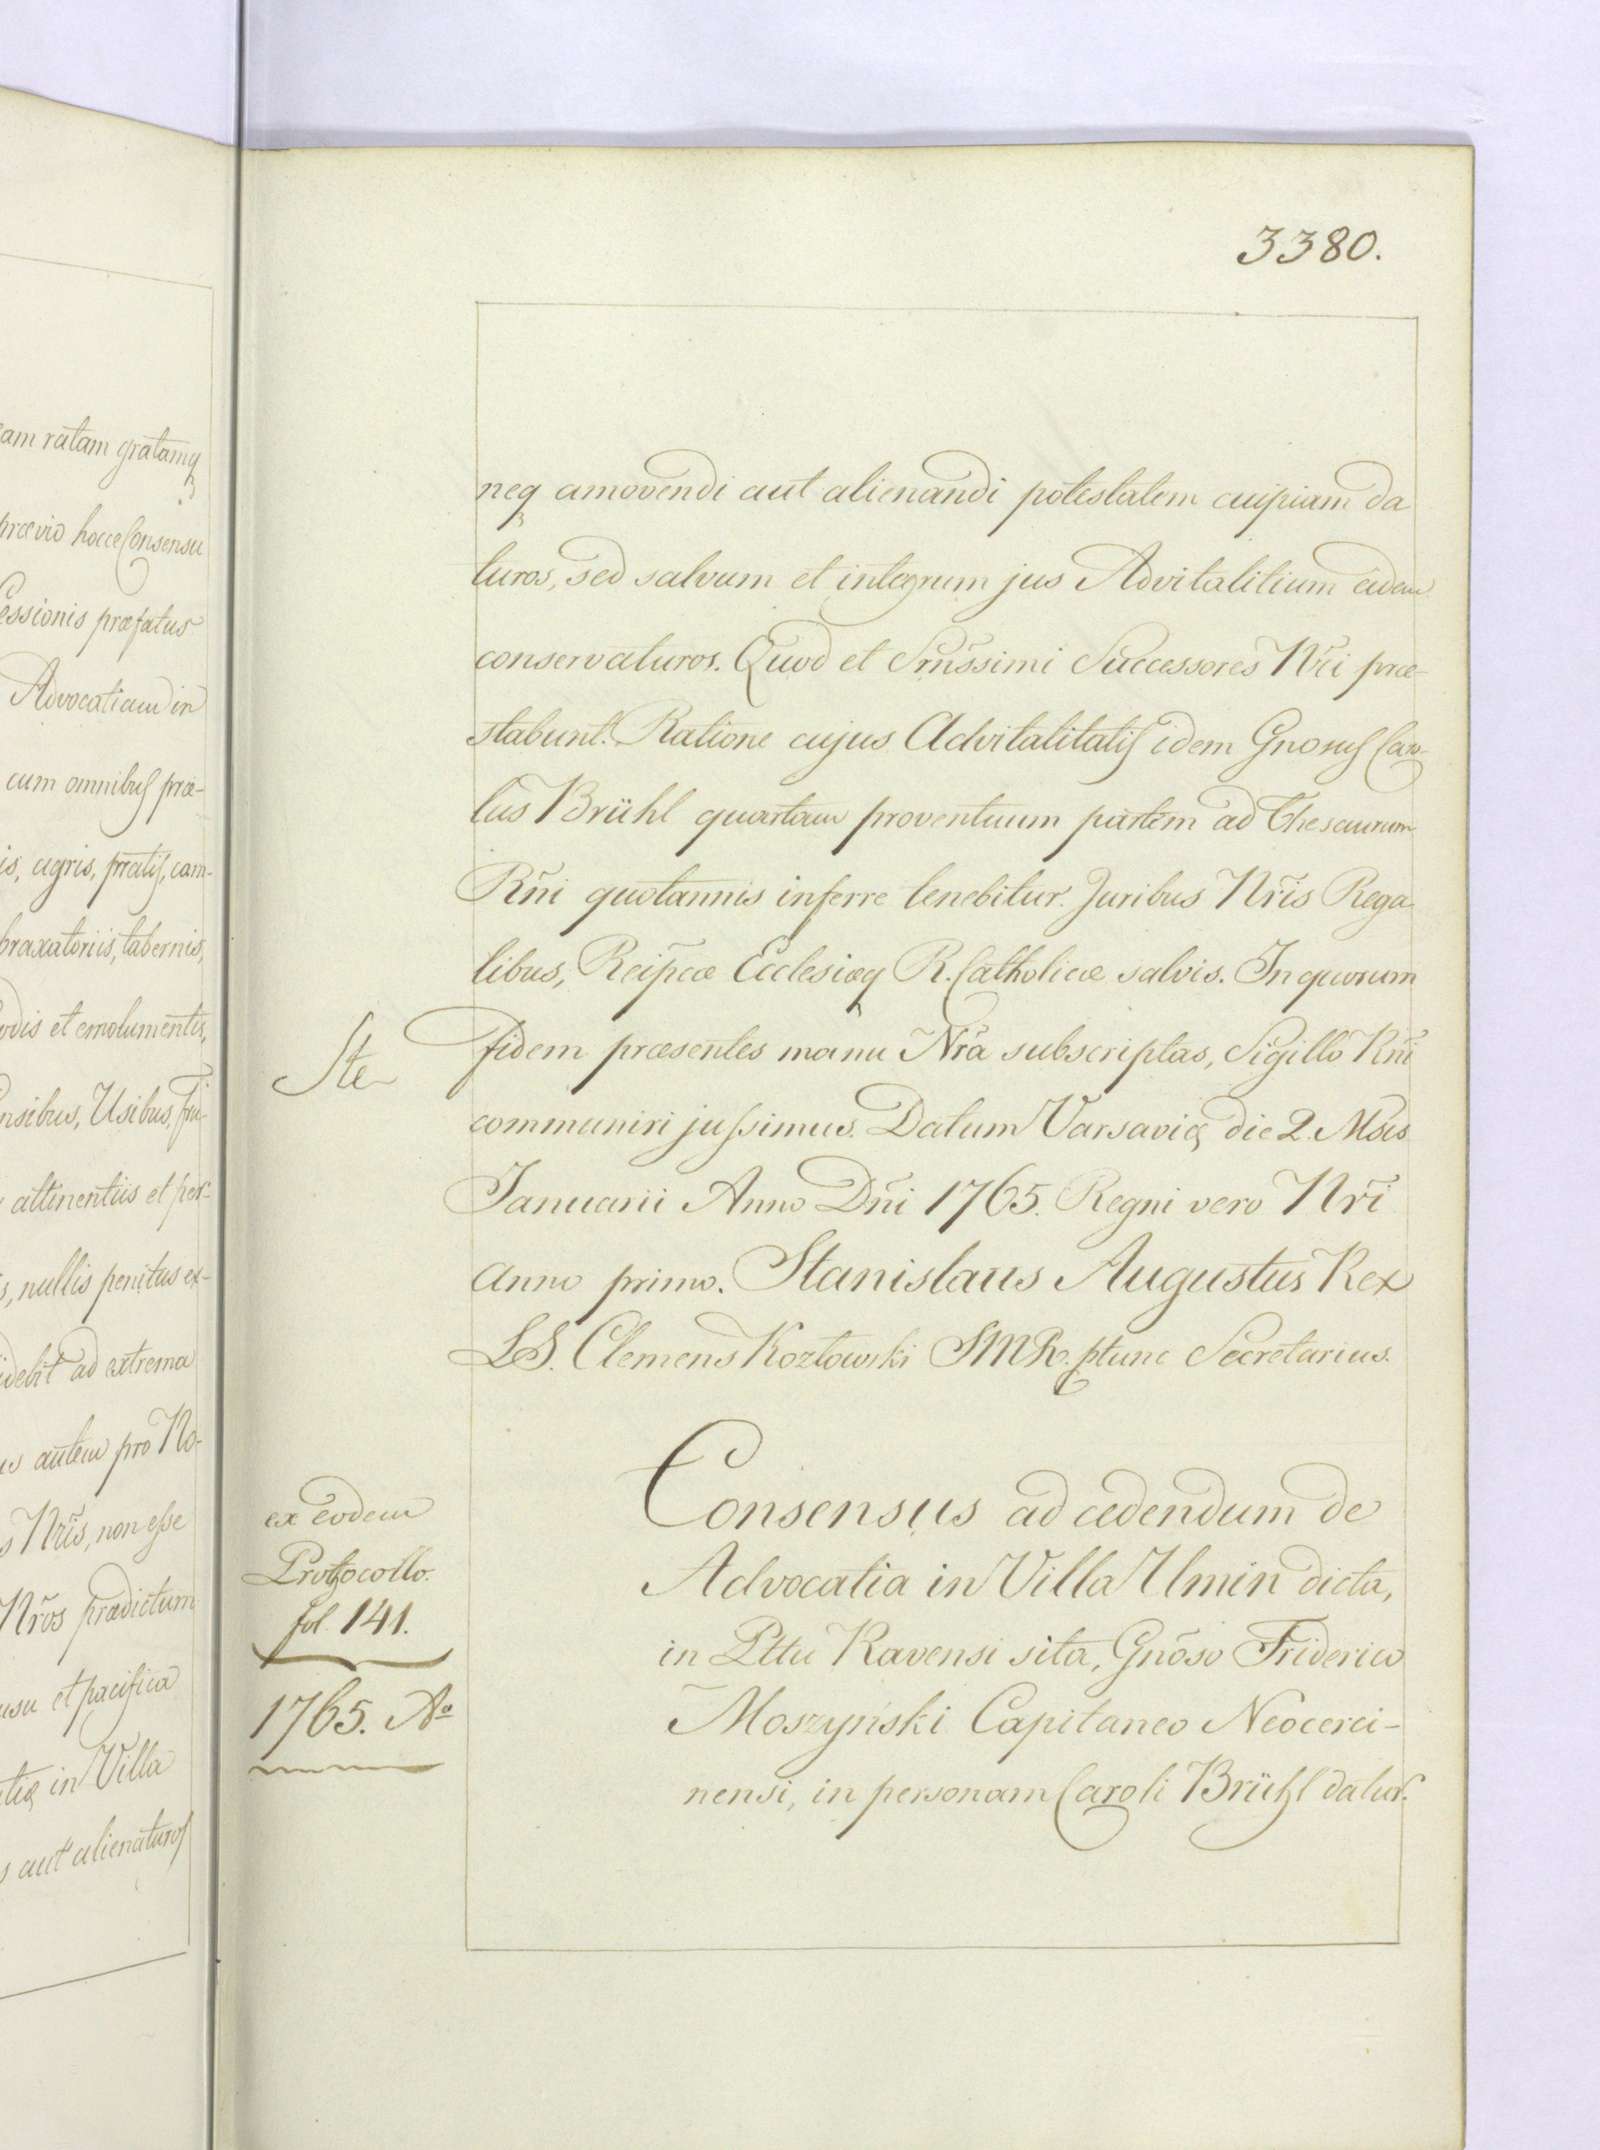 am ratam gratamq
prævio hocce Consensu
essionis præfatus
Advocatiam in
cum omnibus præ-
is, agris, pratis, cam-
braxatoriis, tabernis,
odis et emolumentis,
nsibus, Usibus, fru-
attinentiis et per-
s, nullis penitus ex-
idebit ad extrema
us autem pro No-
s Nr̃is, non esse
Nr̃os prædictum
usu et pacifica
tiæ in Villa
s aut alienaturos
3380.
neq amovendi aut alienandi potestatem cuipiam da
turos, sed salvum et integrum jus Advitalitium eidem
conservaturos. Quod et Srñssimi Successores Nr̃i præ-
stabunt. Ratione cujus Advitalitatis idem Gnosus Caro-
lus Brühl quartam proventuum partem ad Thesaurum
Rñi quotannis inferre tenebitur. Juribus Nr̃is Rega
libus, Reip̃cæ Ecclesiæq R. Catholicæ salvis. In quorum
fidem præsentes manu Nr̃a subscriptas, Sigillo Rñi
communiri jussimus. Datum Varsaviæ die 2. Msis
Januarii Anno Dñi 1765. Regni vero Nr̃i
anno primo. Stanislaus Augustus Rex
LS. Clemens Kozłowski SMR. ptunc Secretarius.
Ste
Consensus ad cedendum de
Advocatia in Villa Ulmin dicta,
in Pttu Ravensi sita, Gnõso Friderico
Moszyński Capitaneo Neocerci-
nensi, in personam Caroli Brühl datur.
ex eodem
Prothocollo.
fol. 141.
1765. Aº